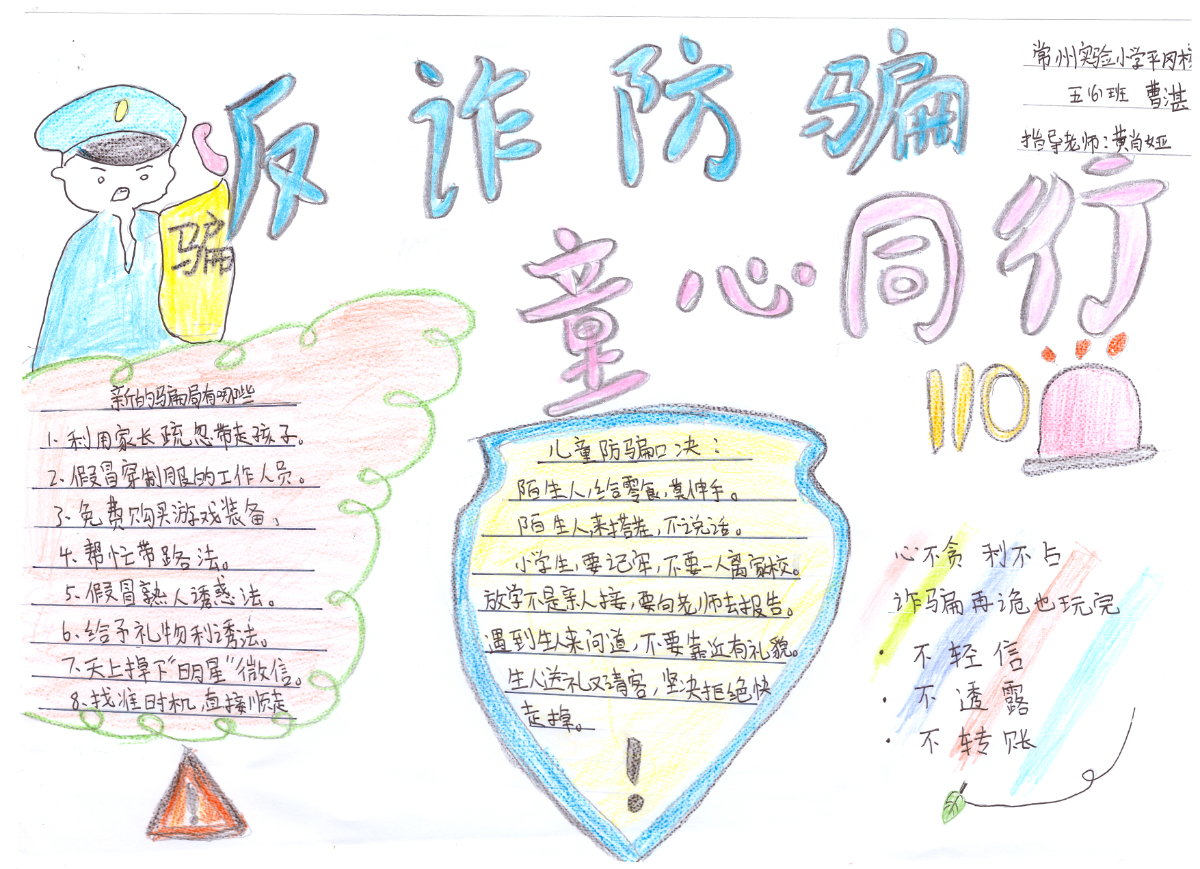 反诈防骗
常州实验小学平冈校
五(6)班 曹湛
指导老师:黄尚娅
骗
童心同行
110
新的骗局有哪些
1.利用家长疏忽带走孩子。
2.假冒穿制服的工作人员。
3.免费购买游戏装备,
4.帮忙带路法。
5.假冒熟人诱惑法。
6.给予礼物利诱法。
7.天上掉下"明星"微信。
8.找准时机,直接顺走
儿童防骗口决:
陌生人,给零食,莫伸手。
陌生人来搭茬,不说话。
小学生,要记牢,不要一人离家校。
放学不是亲人接,要向老师去报告。
遇到生人来问道,不要靠近有礼貌。
生人送礼又请客,坚决拒绝快
走掉。
!
心不贪 利不占
诈骗再诡也玩完
· 不轻信
· 不透露
· 不转账
!